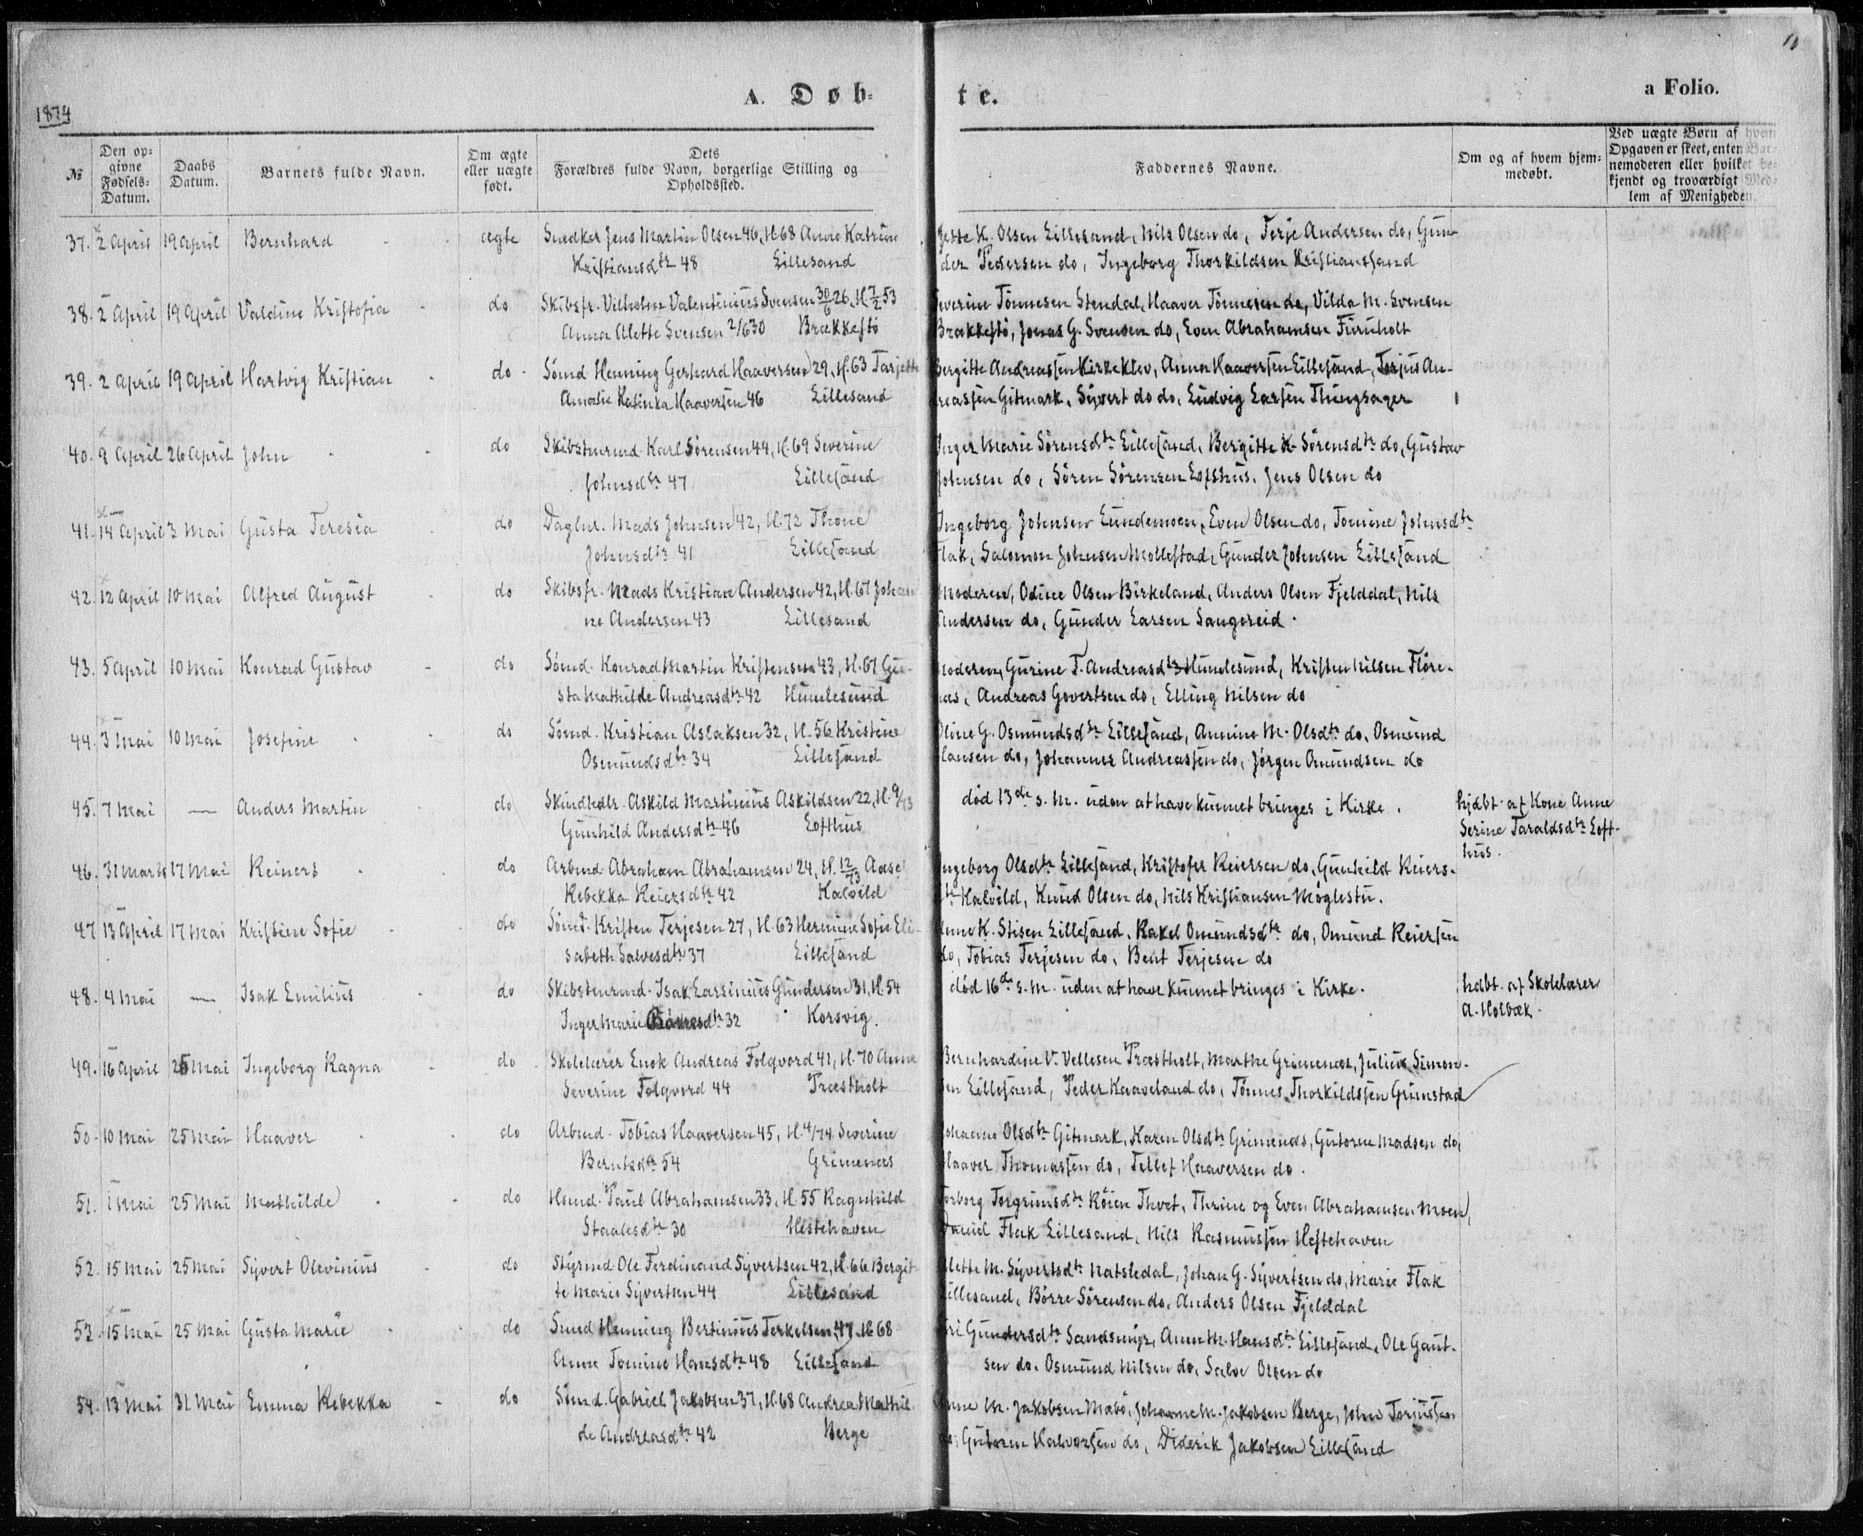 11
1874
A. Døb-
te.
a Folio.
№
Den op-
givne
Fødsels-
Datum.
Daabs
Datum.
Barnets fulde Navn.
Om ægte
eller uægte
født.
Dets
Forældres fulde Navn, borgerlige Stilling og
Opholdssted.
Faddernes Navne.
Om og af hvem hjem-
medøbt.
Ved uægte Børn af hvem
Opgaven er skeet, enten Bar-
nemoderen eller hvilket be-
kjendt og troværdigt Med-
lem af Menigheden.
37. 2 April 19 April Bernhard ægte Snedker Jens Martin Olsen 46, H.68 Anne Katrine
Kristiansdtr 48 Lillesand
K. Olsen Lillesand, Nils Olsen do, Terje Andersen do, Gun-
der Pedersen do, Ingeborg Thorkildsen Kristianssand
38. 2 April 19 April Valdine Kristofia do Skibsfr. Vilhelm Valentinius Svensen 30/6 26, H. 7/2 53
Anna Alette Svensen 2/6 30 Brækkestø
Severine Tønnesen Stendal, Haaver Tønnesen do, Vilda M. Svensen
Brækkestø, Jonas G. Svensen do, Even Abrahamsen Furuholt
39. 2 April 19 April Hartvig Kristian do Sømd Henning Gerhard Haaversen 29, H.63 Tarjette
Amalie Katinka Haaversen 46 Lillesand
Bergitte Andreassen Kirkeklev, Anna Haaversen Lillesand, Torjus An-
reassen Gitmark, Syvert do do, Ludvig Larsen Thingsager
40. 9 April 26 April John do Skibstmrmd Karl Sørensen 44, H.69 Severine
Johnsdtr 47 Lillesand
Inger Marie Sørensdtr Lillesand, Bergitte K Sørensdtr do, Gustav
Johnsen do, Søren Sørensen Lofthus, Jens Olsen do
41. 14 April 3 Mai Gusta Teresia do Daglnr. Mads Johnsen 42, H.72 Thone
Johnsdtr 41 Lillesand
Ingeborg Johnsen Lundemoen, Even Olsen do, Tomine Johnsdtr
Flak, Salomon Johnsen Mollestad, Gunder Johnsen Lillesand
42. 12 April 10 Mai Alfred August do Skibsfr. Mads Kristian Andersen 42, H.67 Johan
ne Andersen 43 Lillesand
Moderen, Odine Olsen Birkeland, Anders Olsen Fjelddal, Nils
Andersen do, Gunder Larsen Sangereid.
43. 5 April 10 Mai Konrad Gustav do Sømd. Konrad Martin Kristensen 43, H.67 Gu-
sta Mathilde Andreasdtr 42 Humlesund
Moderen, Gurine T. Andreasdtr Humlesund, Kristen Nilsen Fløre-
næs, Andreas Govertsen do, Elling Nilsen do
44. 3 Mai 10 Mai Josefine do Sømd. Kristian Aslaksen 32, H.56 Kristine
Osmundsdtr 34 Lillesand
Oline G. Osmundsdtr Lillesand, Annine M. Olsdtr do, Osmund
Hansen do, Johannes Andreassen do, Jørgen Omundsen do
45. 7 Mai — Anders Martin do Skindhdlr. Askild Martinius Askildsen 22, H. 9/73
Gunhild Andersdtr 46 Lofthus
død 13de s. M. uden at have kunnet bringes i Kirke.
hjdbt. af Kone Anne
Serine Taraldsdtr Loft-
hus.
46. 31 Marts 17 Mai Reiners do Arbmd. Abraham Abrahamsen 24, H. 12/73 Aase
Rebekka Reiersdtr 42 Kalvild
Ingeborg Olsdtr Lillesand, Kristofer Reiersen do, Gunhild Reiers-
dtr Kalvild, Knud Olsen do, Nils Kristiansen Møglestu.
47 13 April 17 Mai Kristine Sofie do Sømd. Kristen Terjesen 27, H.63 Hermine Sofie Eli-
sabeth Salvesdtr 37 Lillesand
Anne K. Stisen Lillesand, Rakel Omundsdtr do, Omund Reiersen
do, Tobias Terjesen do, Bent Terjesen do
48. 4 Mai — Isak Emilius do Skibstmrmd. Isak Larsinius Gundersen 31, H.54
Inger Marie 32 Korsvig.
død 16de s. M. uden at have kunnet bringes i Kirke.
hdbt. af Skolelærer
A. Holbæk.
49. 16 April 25 Mai Ingeborg Ragna do Skolelærer Enok Andreas Folqvord 41, H.70 Anne
Severine Folqvord 44 Præstholt
Bernhardine V. Vellesen Præstholt, Marthe Grimenæs, Julius Simon-
sen Lillesand, Peder Kaaveland do, Tønnes Thorkildssen Grimstad
50. 10 Mai 25 Mai Haaver do Arbmd. Tobias Haaversen 45, H. 4/74 Severine
Berntsdtr 54 Grimenæs
Johanne Olsdtr Gitmark, Karen Olsdtr Grimenæs, Gutorm Madsen do,
Haaver Thomassen do, Tellef Haaversen do.
51. 1 Mai 25 Mai Mathilde do Hmd. Paul Abrahamsen 33, H.55 Ragnhild
Staalesdtr 30 Hestehaven
Torborg Torgrimsdtr Røien Thvet, Thrine og Even Abrahamsen Moen,
Daniel Flak Lillesand, Nils Rasmussen Hestehaven
52. 15 Mai 25 Mai Syvert Olevinius do Styrmd Ole Ferdinand Syvertsen 42, H.66 Bergit-
te Marie Syvertsen 44 Lillesand
Alette M. Syvertsdtr Natsledal, Johan G. Syvertsen do, Marie Flak
Lillesand, Børre Sørensen do, Anders Olsen Fjelddal
53. 15 Mai 25 Mai Gusta Marie do Smed Henning Bertinius Terkelsen 47, H.68
Anne Tomine Hansdtr 48 Lillesand
Siri Gundersdtr Sandsmyr, Anne M. Hansdtr Lillesand, Ole Gaut-
sen do, Osmund Nilsen do, Salve Olsen do
54. 13 Mai 31 Mai Emma Rebekka do Sømd. Gabriel Jakobsen 37, H.68 Andrea Mathil-
de Andreasdtr 42 Berge
Anne M. Jakobsen Mabø, Johanne M. Jakobsen Berge, John Torjussen
do, Gutorm Halvorsen do, Diderik Jakobsen Lillesand